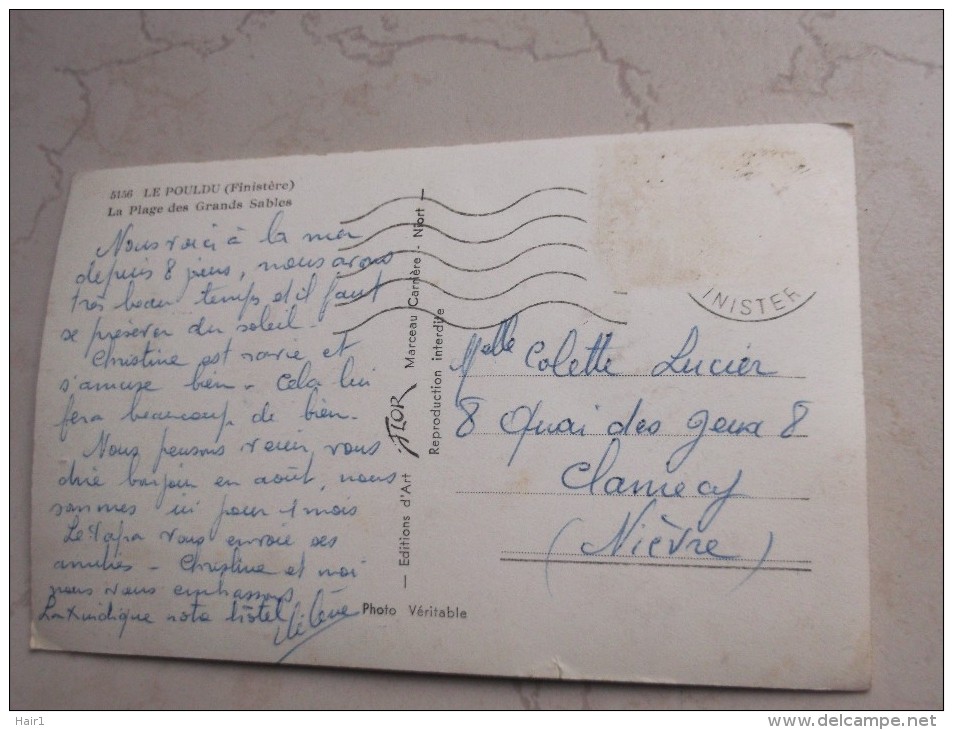 5156 LE POULDU (Finistère)
La Plage des Grands Sables
Nous voici à la mer
depuis 8 jours, nous avons
très beau temps et il faut
se préserver du soleil.
Christine est ravie et
s'amuse bien - Cela lui
fera beaucoup de bien -
Nous pensons venir vous
dire bonjour en août, nous
sommes ici pour 1 mois
Le Papa vous envoie ses
amitiés - Christine et moi
nous vous embrassons
La X indique notre hôtel
Hélène
— Editions d'Art JFLOR Marceau Carrière - Niort —
Reproduction interdite
Photo Véritable
INISTER
Melle Colette Lucier
8 Quai des Jeux 8
Clamecy
(Nièvre)
Hair1
www.delcampe.net